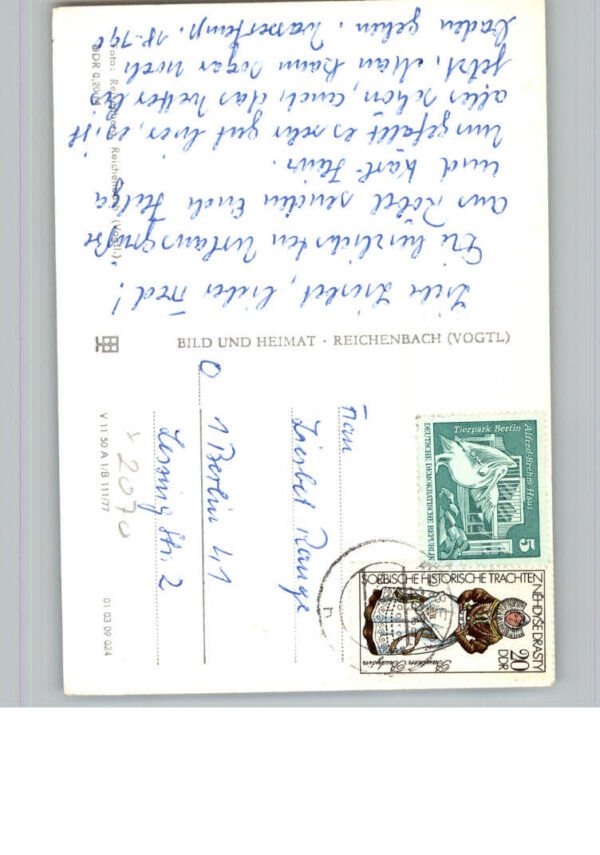 Liebe Liesbet, lieber Fred!
Die herzlichsten Urlaubsgrüße
aus Röbel senden Euch Helga
und Karl-Heinz.
Uns gefällt es sehr gut hier, es ist
alles schön, auch das Wetter bis
jetzt. Man kann sogar noch
baden gehen. Wassertemp. 18-19°
Reichenbach (Vogtl)
DDR 0,20
BILD UND HEIMAT · REICHENBACH (VOGTL)
Frau
Liesbet Range
1 Berlin 41
O
Lessing Str. 2
2070
V 11 50 A 1/B 111/77
01 03 09 024
Tierpark Berlin
Alfred-Brehm-Haus
DEUTSCHE DEMOKRATISCHE REPUBLIK
5
SORBISCHE HISTORISCHE TRACHTEN
NĚHDYŠE DRASTY
20
DDR
Bautzen Budyšin